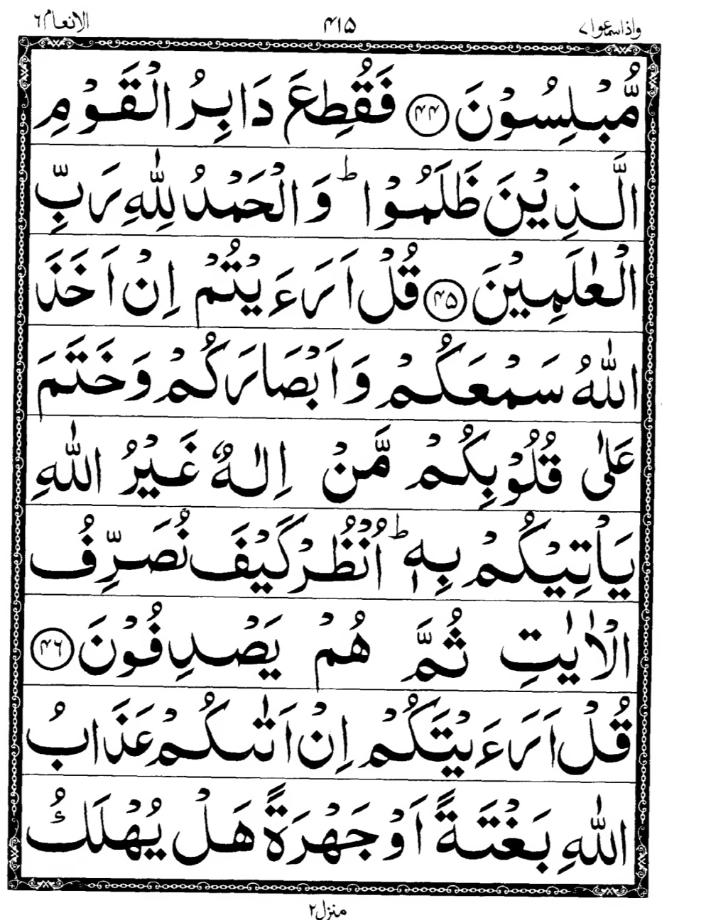 واذاسمعوا۷ ۴۱۵ الانعام۶
مُّبْلِسُوْنَ ﴿۴۴﴾ فَقُطِعَ دَابِرُ الْقَوْمِ
الَّذِيْنَ ظَلَمُوْا ؕ وَالْحَمْدُ لِلّٰهِ رَبِّ
الْعٰلَمِيْنَ ﴿۴۵﴾ قُلْ اَرَءَيْتُمْ اِنْ اَخَذَ
اللّٰهُ سَمْعَكُمْ وَاَبْصَارَكُمْ وَخَتَمَ
عَلٰى قُلُوْبِكُمْ مَّنْ اِلٰهٌ غَيْرُ اللّٰهِ
يَاْتِيْكُمْ بِهٖ ؕ اُنْظُرْ كَيْفَ نُصَرِّفُ
الْاٰيٰتِ ثُمَّ هُمْ يَصْدِفُوْنَ ﴿۴۶﴾
قُلْ اَرَءَيْتَكُمْ اِنْ اَتٰىكُمْ عَذَابُ
اللّٰهِ بَغْتَةً اَوْ جَهْرَةً هَلْ يُهْلَكُ
منزل۲